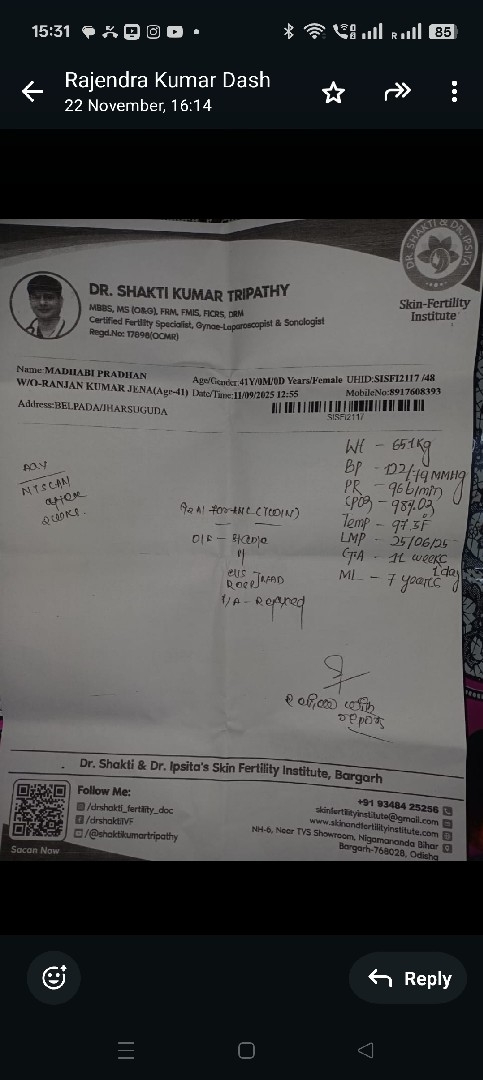 15:31
85
Rajendra Kumar Dash
22 November, 16:14
DR. SHAKTI & DR. IPSITA
Skin-Fertility
Institute
DR. SHAKTI KUMAR TRIPATHY
MBBS, MS (O&G), FRM, FMIS, FICRS, DRM
Certified Fertility Specialist, Gynae-Laparoscopist & Sonologist
Regd.No: 17898(OCMR)
Name:MADHABI PRADHAN Age/Gender:41Y/0M/0D Years/Female UHID:SISFI2117 /48
W/O-RANJAN KUMAR JENA(Age-41) Date/Time:11/09/2025 12:55 MobileNo:8917608393
Address:BELPADA/JHARSUGUDA
SISFI2117
Wt - 65.1Kg
BP - 122/79 MMHg
PR - 96 b/min
SPO2 - 98%
Temp - 97.3F
LMP - 25/06/25
GA - 11 weeks 1 day
ML - 7 years
Adv
NT SCAN
after
2 weeks.
Review with
reports
Dr. Shakti & Dr. Ipsita's Skin Fertility Institute, Bargarh
Follow Me:
/drshakti_fertility_doc
/drshaktiIVF
/@shaktikumartripathy
Sacan Now
+91 93484 25256
skinfertilityinstitute@gmail.com
www.skinandfertilityinstitute.com
NH-6, Near TVS Showroom, Nigamananda Bihar
Bargarh-768028, Odisha
Reply